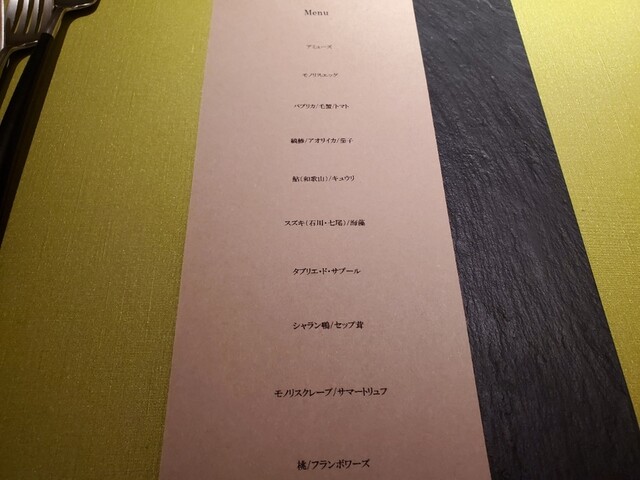 Menu
アミューズ
モノリスエッグ
パプリカ/毛蟹/トマト
縞鯵/アオリイカ/茄子
鮎(和歌山)/キュウリ
スズキ(石川・七尾)/海藻
タブリエ・ド・サプール
シャラン鴨/セップ茸
モノリスクレープ/サマートリュフ
桃/フランボワーズ